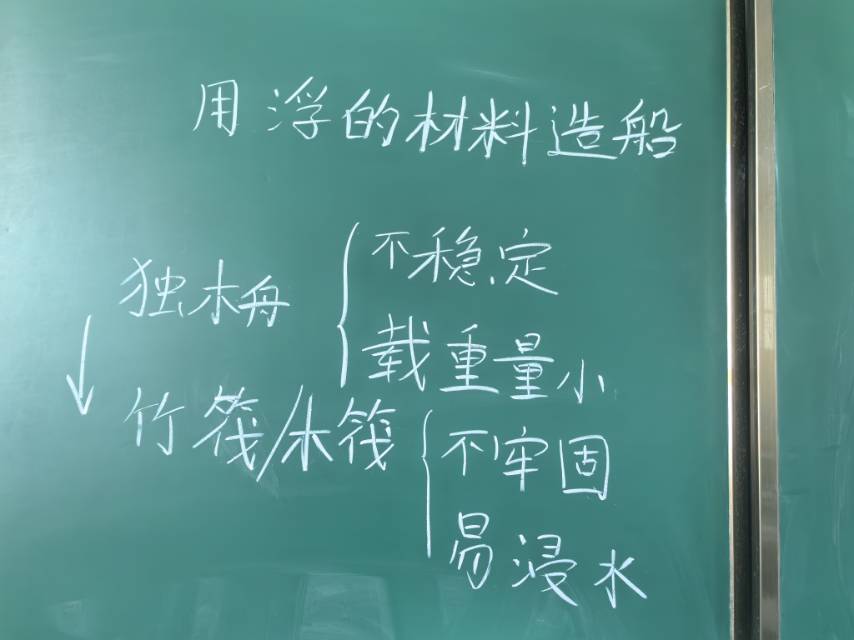 用浮的材料造船
独木舟
不稳定
载重量小
竹筏/木筏
不牢固
易浸水